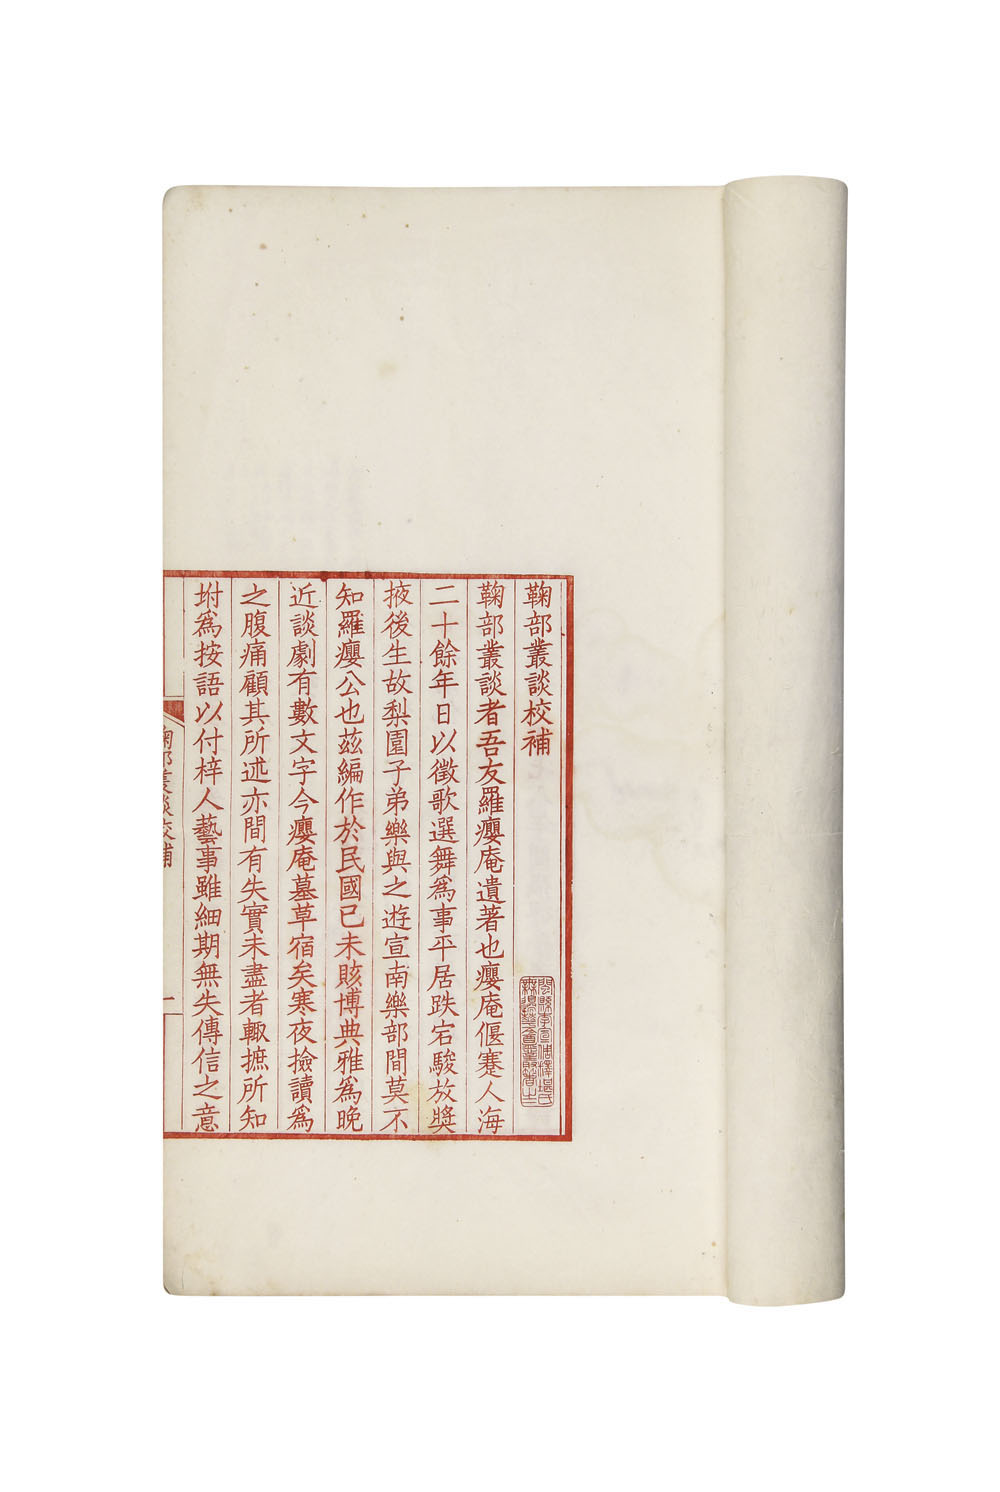 鞠部叢談校補
鞠部叢談者吾友羅癭庵遺著也癭庵偃蹇人海
二十餘年日以徵歌選舞爲事平居跌宕駿放奬
掖後生故梨園子弟樂與之遊宣南樂部間莫不
知羅癭公也茲編作於民國己未賅博典雅爲晚
近談劇有數文字今癭庵墓草宿矣寒夜撿讀爲
之腹痛顧其所述亦間有失實未盡者輙摭所知
坿爲按語以付梓人藝事雖細期無失傳信之意
鞠部叢談校補
一